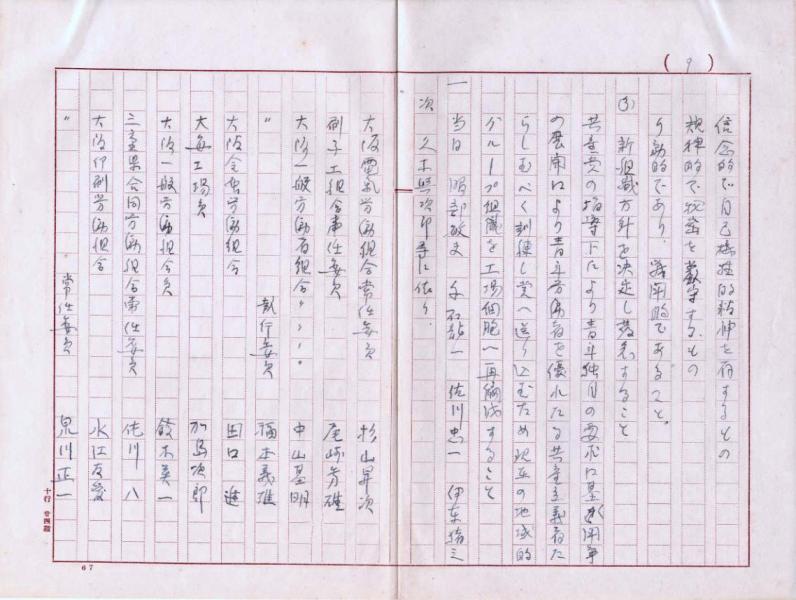 (9)
信念的で自己犠牲的精神を有するもの
規律的で秘密を厳守するもの
行動的であり、戦闘的であること。
(3) 新組織方針を決定し発表すること
共産党の指導下により青年独自の要求に基く闘争
の展開により青年労働者を優れたる共産主義者た
らしむべく訓練し党へ送り込むため現在の地域的
グループ組織を工場細胞へ再編成すること
一 当日 服部 一 佐川忠一 伊東
次 久木興次郎等に依り、
大阪電気労働組合常任委員 杉山昇次
硝子工組合常任委員 尾崎芳雄
大阪一般労働者組合〃〃〃 中山基明
〃 執行委員 福本義雄
大阪金属労働組合 田口進
大毎工場員 加島次郎
大阪一般労働組合員 鈴木英一
三重県合同労働組合常任委員 佐川八
大阪印刷労働組合 水江友愛
〃 常任委員 泉川正一
十行 廿四詰
67